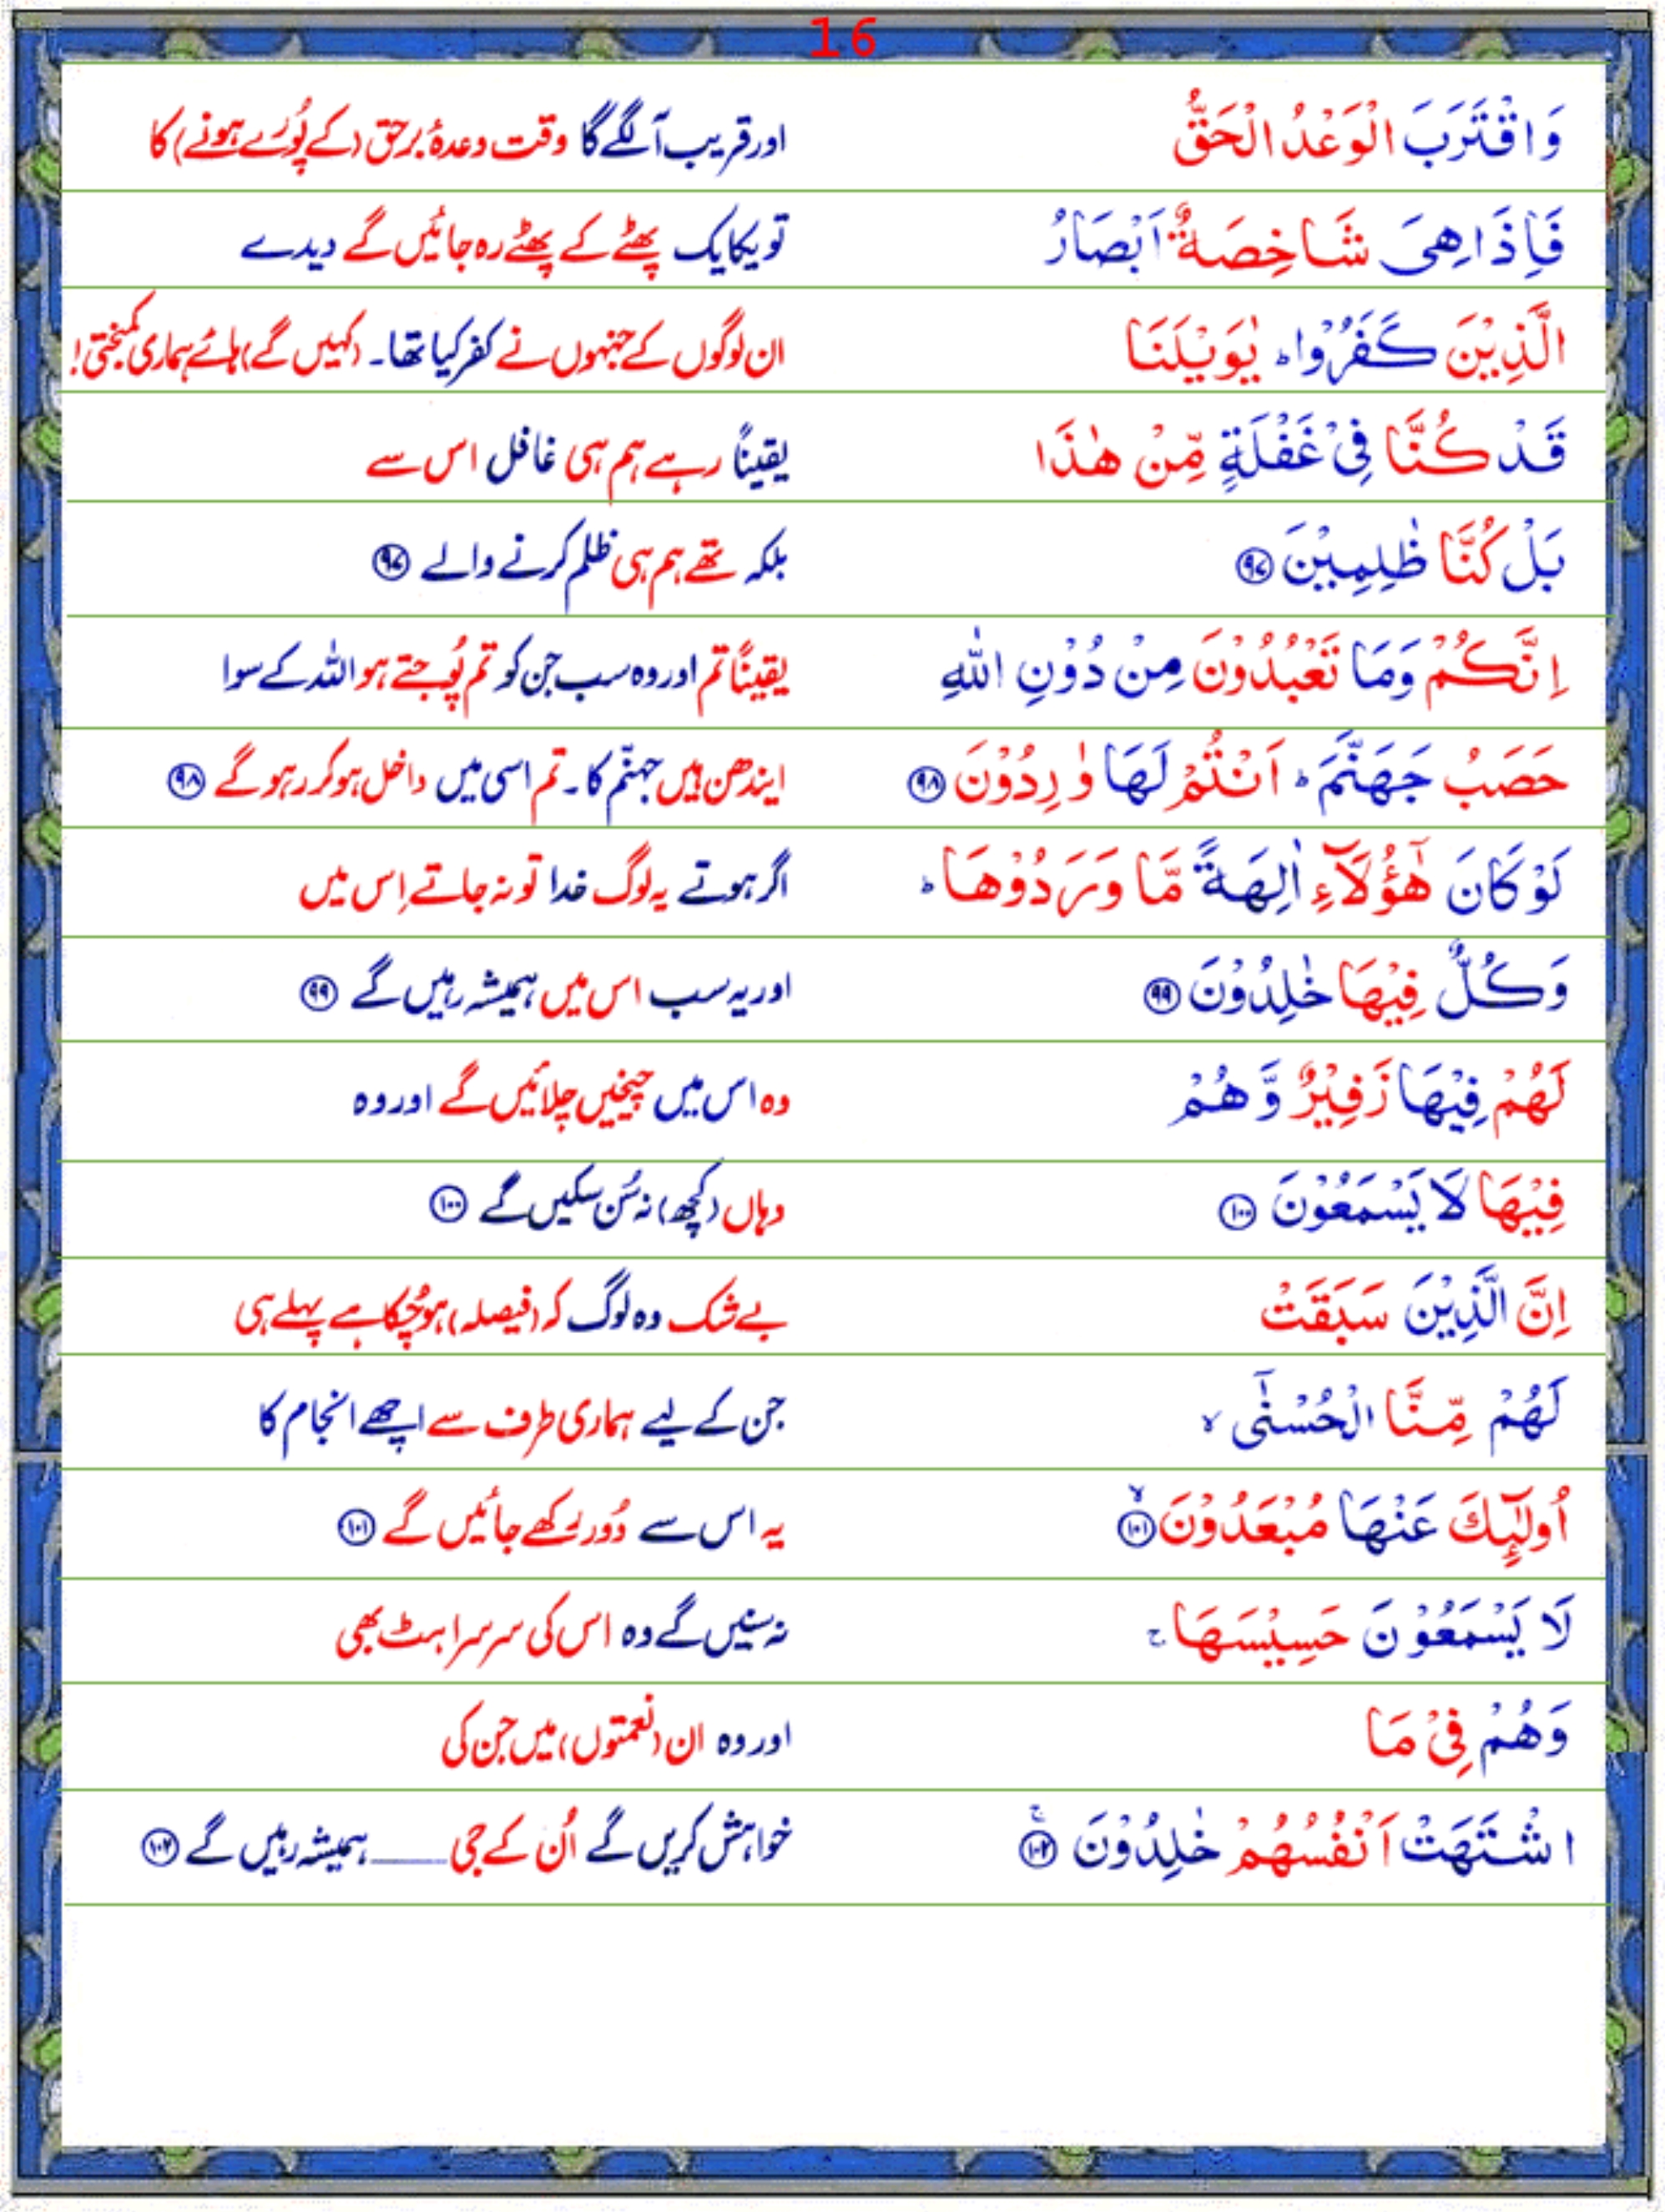 16
وَاقْتَرَبَ الْوَعْدُ الْحَقُّ اور قریب آ لگے گا وقت وعدۂ برحق (کے پُورے ہونے) کا
فَاِذَا هِىَ شَاخِصَةٌ اَبْصَارُ تو یکایک پھٹے کے پھٹے رہ جائیں گے دیدے
الَّذِيْنَ كَفَرُوْا ؕ يٰوَيْلَنَا ان لوگوں کے جنہوں نے کفر کیا تھا۔ (کہیں گے) ہائے ہماری کمبختی!
قَدْ كُنَّا فِىْ غَفْلَةٍ مِّنْ هٰذَا یقیناً رہے ہم ہی غافل اس سے
بَلْ كُنَّا ظٰلِمِيْنَ ۹۷ بلکہ تھے ہم ہی ظلم کرنے والے ۹۷
اِنَّكُمْ وَمَا تَعْبُدُوْنَ مِنْ دُوْنِ اللّٰهِ یقیناً تم اور وہ سب جن کو تم پُوجتے ہو اللہ کے سوا
حَصَبُ جَهَنَّمَ ؕ اَنْتُمْ لَهَا وٰرِدُوْنَ ۹۸ ایندھن ہیں جہنّم کا۔ تم اسی میں داخل ہو کر رہو گے ۹۸
لَوْ كَانَ هٰٓؤُلَآءِ اٰلِهَةً مَّا وَرَدُوْهَا ؕ اگر ہوتے یہ لوگ خدا تو نہ جاتے اِس میں
وَكُلٌّ فِيْهَا خٰلِدُوْنَ ۹۹ اور یہ سب اس میں ہمیشہ رہیں گے ۹۹
لَهُمْ فِيْهَا زَفِيْرٌ وَّهُمْ وہ اس میں چیخیں چلائیں گے اور وہ
فِيْهَا لَا يَسْمَعُوْنَ ۱۰۰ وہاں (کچھ) نہ سُن سکیں گے ۱۰۰
اِنَّ الَّذِيْنَ سَبَقَتْ بے شک وہ لوگ کہ (فیصلہ) ہو چُکا ہے پہلے ہی
لَهُمْ مِّنَّا الْحُسْنٰٓى ۙ جن کے لیے ہماری طرف سے اچھے انجام کا
اُولٰٓٮِٕكَ عَنْهَا مُبْعَدُوْنَ ۙ ۱۰۱ یہ اس سے دُور رکھے جائیں گے ۱۰۱
لَا يَسْمَعُوْنَ حَسِيْسَهَا ۚ نہ سنیں گے وہ اس کی سرسراہٹ بھی
وَهُمْ فِىْ مَا اور وہ ان (نعمتوں) میں جن کی
اشْتَهَتْ اَنْفُسُهُمْ خٰلِدُوْنَ ۚ ۱۰۲ خواہش کریں گے اُن کے جی ــــــ ہمیشہ رہیں گے ۱۰۲